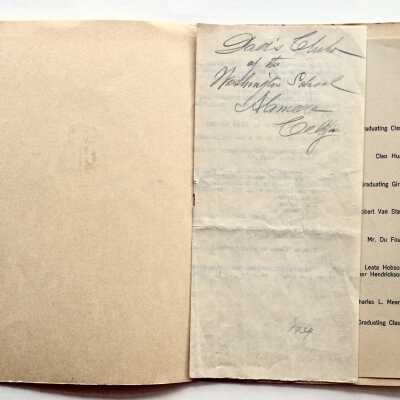 Dad's Club
of the
Washington School
Alameda
Calif
1924
Graduating Cla
Cleo Hu
Graduating Gir
obert Van Sta
Mr. Du Fou
Leata Hobso
ar Hendrickson
harles L. Meer
Graduating Clas